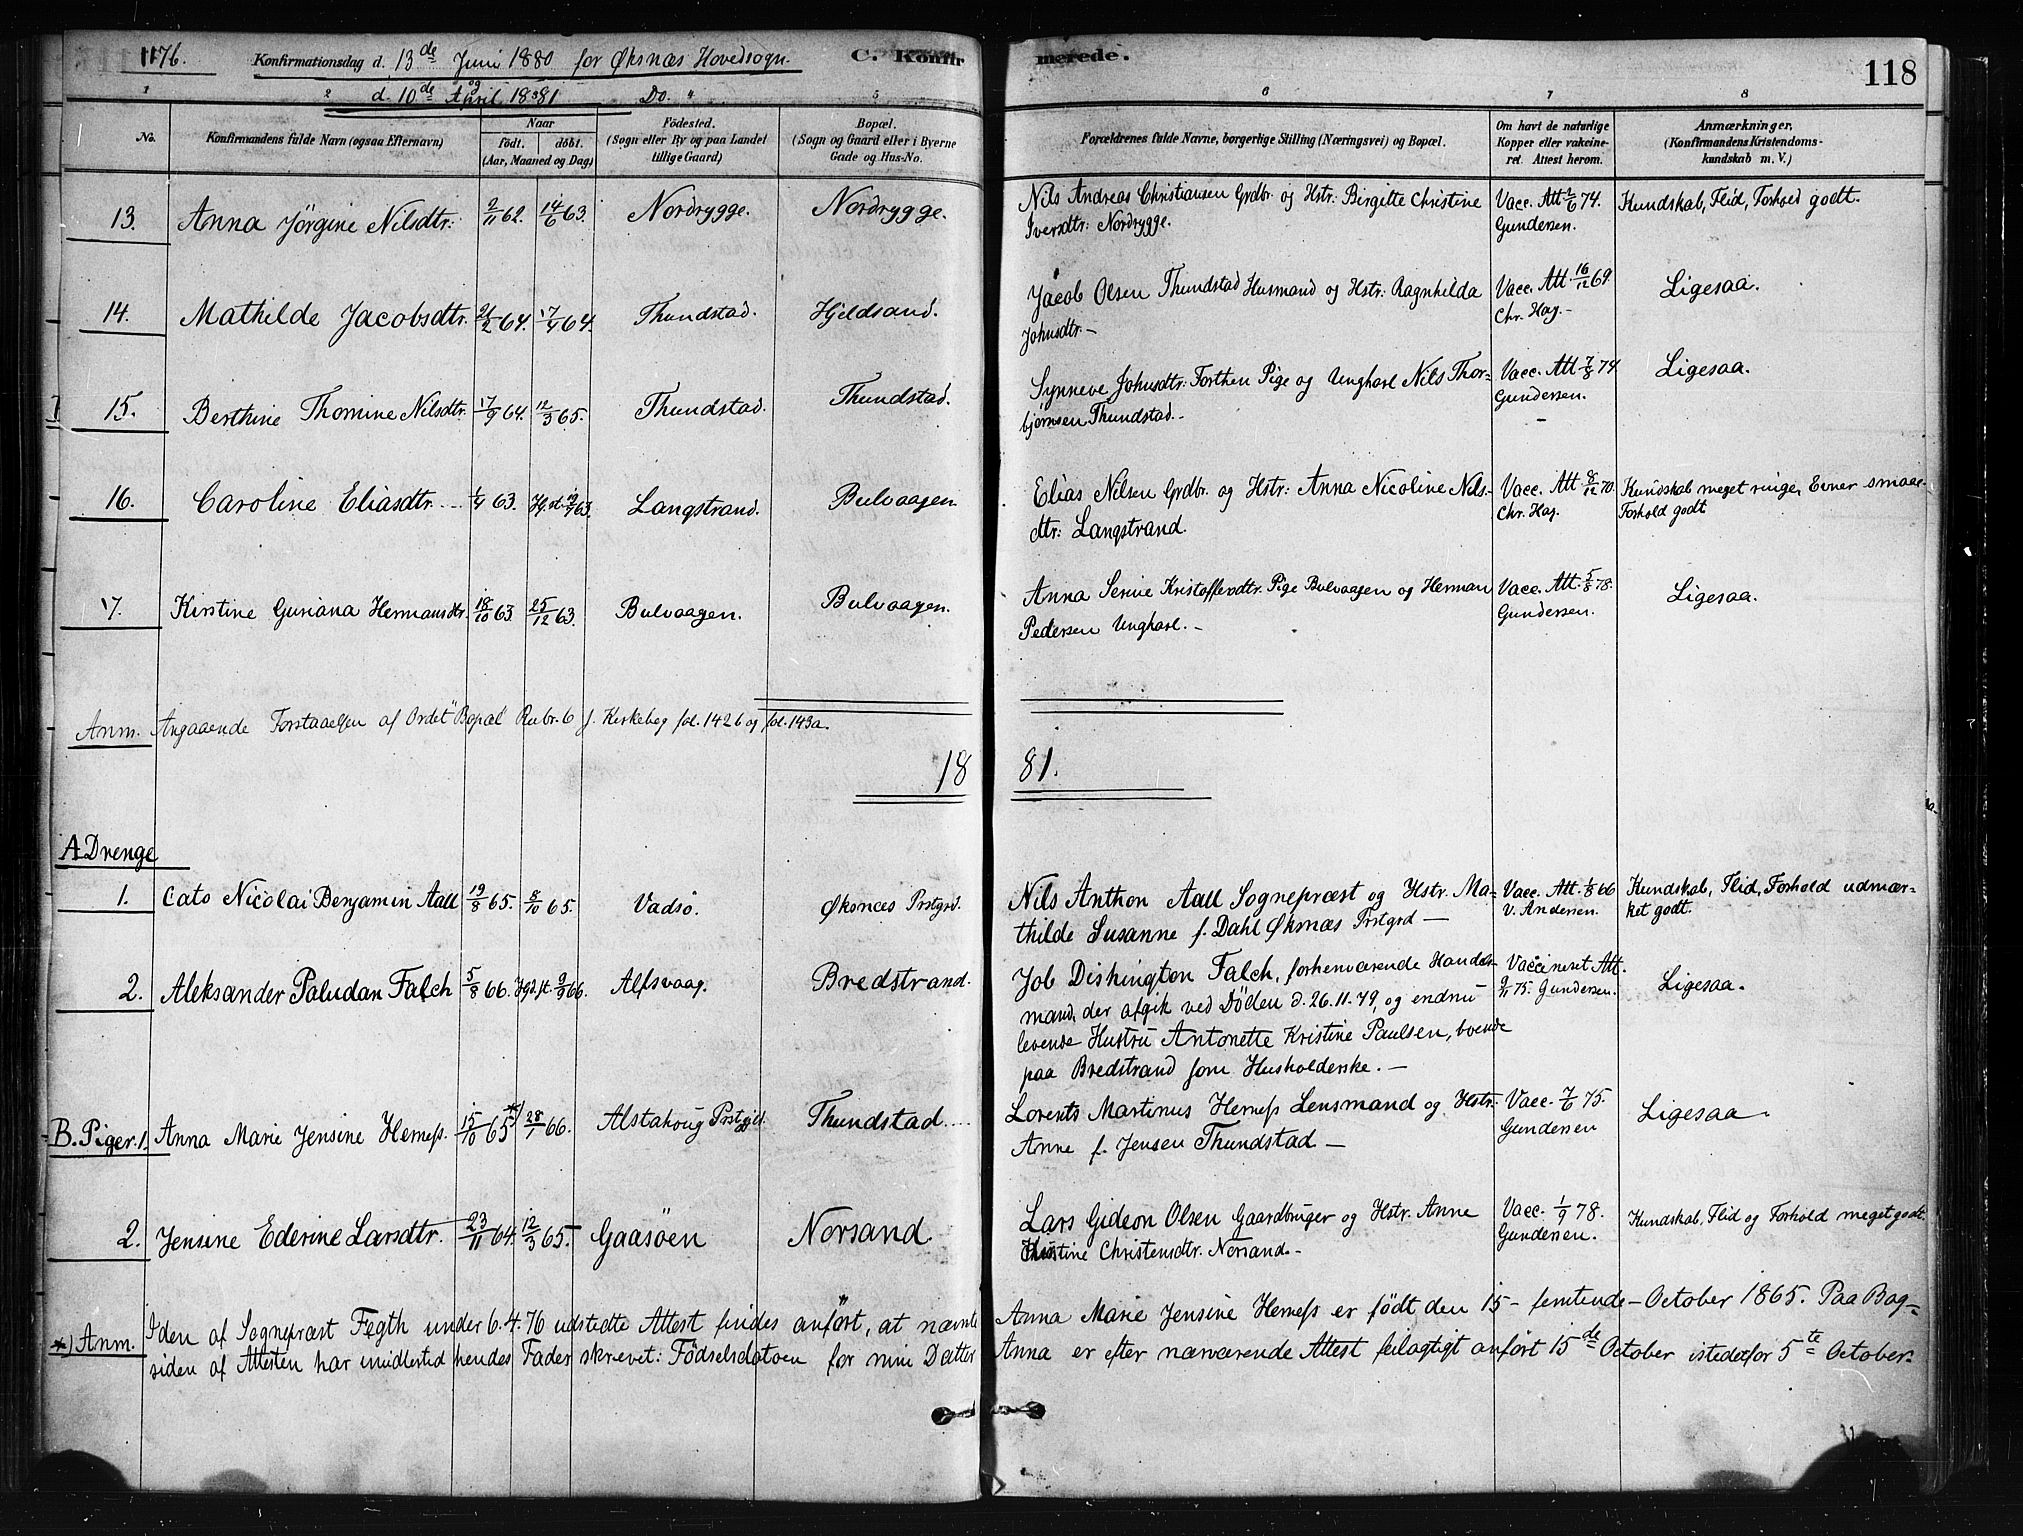 1176. Konfirmationsdag d. 13de Juni 1880 for Øksnæs Hovedsogn. C. Konfirmerede. 118
og
d. 10de April 1881 Do.
1 2 4 5 6 7 8
No. Konfirmandens fulde Navn (ogsaa Efternavn) Naar født. døbt. (Aar, Maaned og Dag) Fødested. (Sogn eller By og paa Landet tillige Gaard) Bopæl. (Sogn og Gaard eller i Byerne Gade og Hus-No. Forældrenes fulde Navne, borgerlige Stilling (Næringsvei) og Bopæl. Om havt de naturlige Kopper eller vakcineret. Attest herom. Anmærkninger. (Konfirmandens Kristendomskundskab m. V.)
13. Anna Jörgine Nilsdtr: 2/11 62. 14/6 63. Nordrygge. Nordrygge. Nils Andreas Christiansen Grdbr. og Hstr: Birgitte Christine Vacc. Att 2/6 74. Kundskab, Flid, Forhold godt.
Iversdtr: Nordrygge. Gundersen.
14. Mathilde Jacobsdtr. 21/2 64. 17/4 64. Thundstad. Hjeldsand. Jacob Olsen Thundstad Husmand og Hstr: Ragnhilda Vacc. Att. 16/12 69. Ligesaa.
Johnsdtr.- Chr. Hag.-
15. Berthine Thomine Nilsdtr. 17/9 64. 12/3 65. Thundstad. Thundstad. Synneve Johnsdtr: Forthen Pige og Ungkarl Nils Thor- Vacc. Att 7/8 74 Ligesaa.
bjornsen Thundstad.- Gundersen.
16. Caroline Eliasdtr. 1/4 63. Langstrand. Bulvaagen. Elias Nilsen Grdbr. og Hstr: Anna Nicoline Nils- Vacc. Att 8/12 70. Kundskab meget ringe, Evner smaae
dtr: Langstrand. Chr. Hag. Forhold godt
17. Kirstine Guriana Hermansdtr. 18/10 63. 25/12 63. Bulvaagen. Bulvaagen. Anna Serine Kristoffersdtr. Pige Bulvaagen og Herman Vacc. Att. 5/8 78. Ligesaa.
Pedersen Ungkarl.- Gundersen.
Anm. Angaaende Forstaaelsen af Ordet "Bopæl" Rubr. 6 f. Kirkebog fol. 142b og fol. 143a.
1881.
A Drenge
1. Cato Nicolai Benjamin Aall 19/8 65. 8/10 65. Vadsø. Øksnæs Prstgrd. Nils Anthon Aall Sognepræst og Hstr. Ma- Vacc. Att. 1/8 66 Kundskab, Flid, Forhold udmær-
thilde Susanne f. Dahl Øksnæs Prstgrd- V. Andersen. ket godt.
2. Aleksander Paludan Falch 5/8 66. 9/9 66. Alfsvaag. Bredstrand. Job Dishington Falch, forhenværende Handels- Vaccineret Att. Ligesaa.
mand, der afgik ved Döden d. 26.11.79, og endnu 9/11 75. Gundersen.
levende Hustru Antonette Kristine Paulsen, boende
paa Bredstrand som Husholderske.-
B. Piger. 1. Anna Marie Jensine Herness. 15/10 65 *) 28/1 66. Alstahoug Prstgjd. Thundstad. Lorents Martinus Herness Lensmand og Hstr: Vacc. 7/6 75. Ligesaa.
Anne f. Jensen Thundstad- Gundersen
2. Jensine Ederine Larsdtr. 23/11 64. 12/3 65. Gaasöen Norsand. Lars Gideon Olsen Gaardbruger og Hstr. Anne Vacc. 1/9 78. Kundskab, Flid og Forhold meget godt.
Christine Christensdtr. Norsand.- Gundersen.
*) Anm. I den af Sognepræst Fegth under 6.4.76 udstedte Attest findes anfört, at nævnte Anna Marie Jensine Herness er födt den 15- femtende- October 1865. Paa Bag-
siden af Attesten har imidlertid hendes Fader skrevet: Födselsdatoen for min Datter Anna er efter nærværende Attest feilagtigt anfört 15de October istedetfor 5te October.